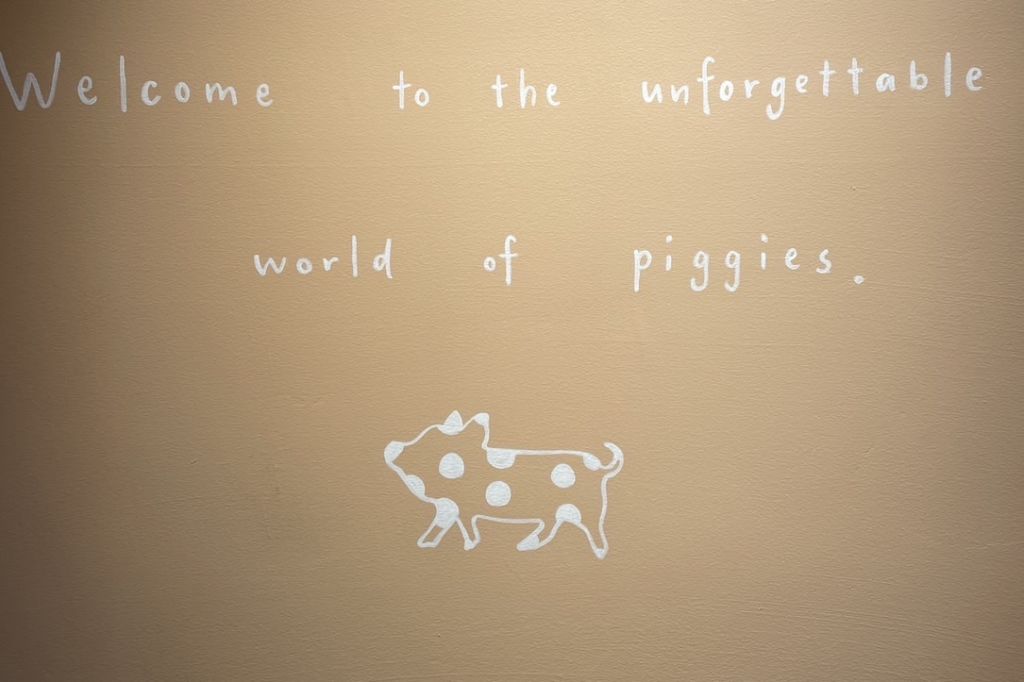 Welcome to the unforgettable
world of piggies.